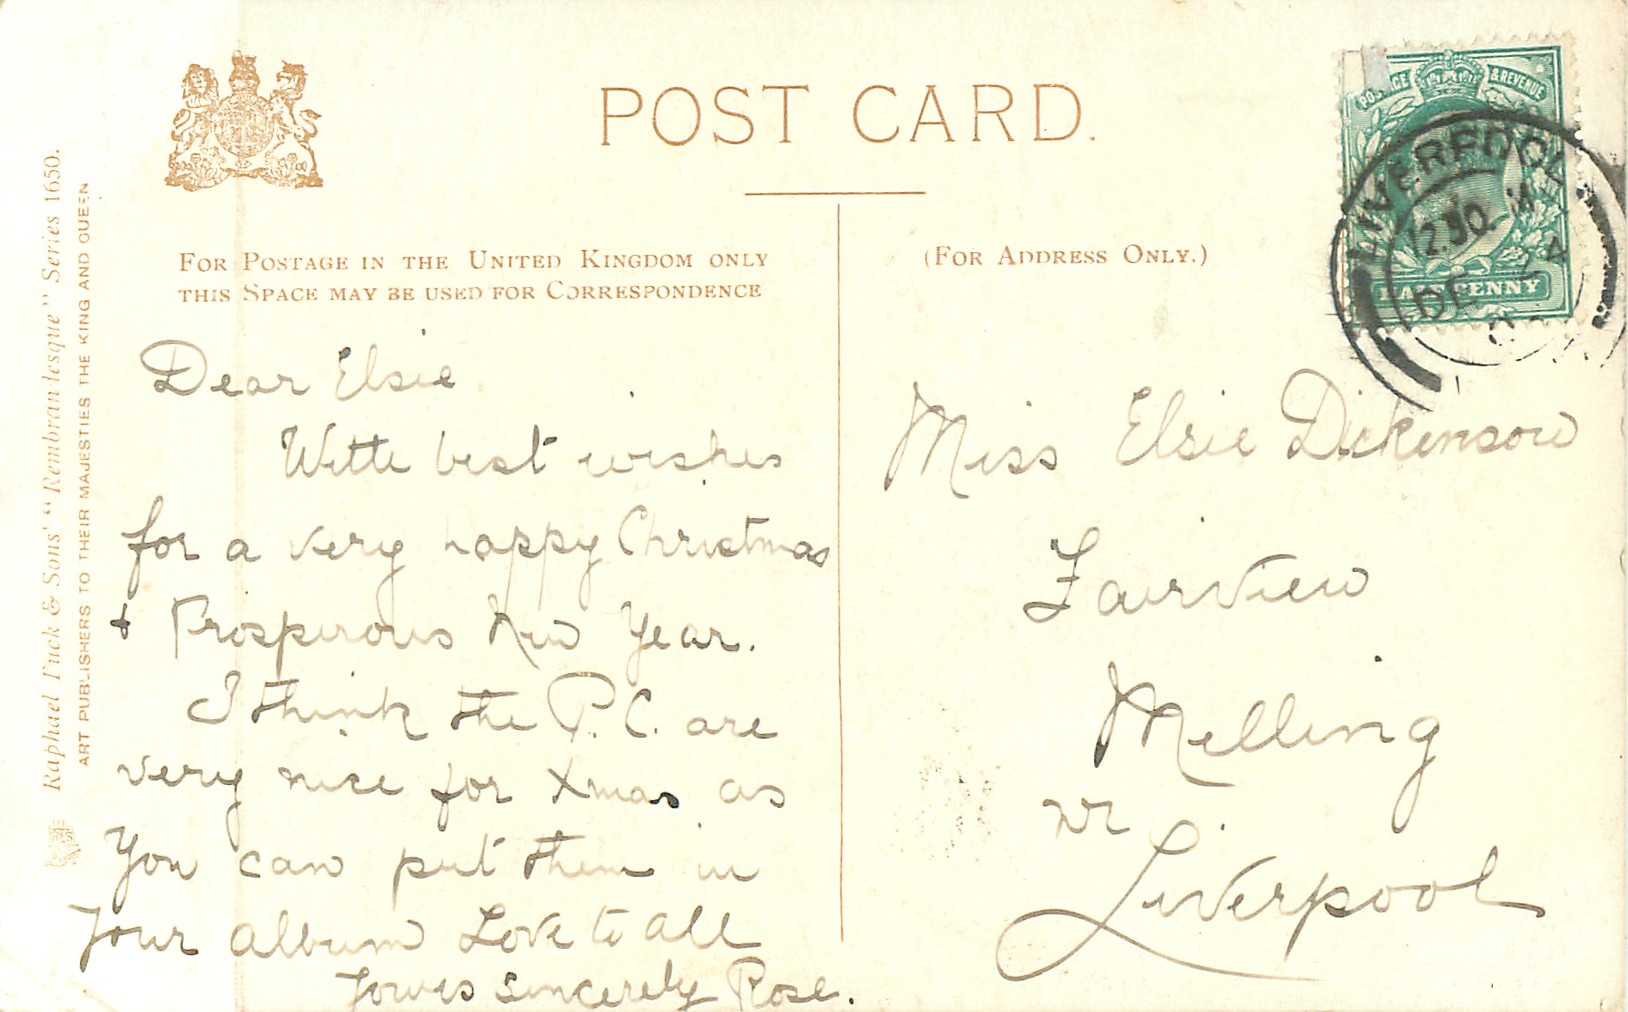 POST CARD.
FOR POSTAGE IN THE UNITED KINGDOM ONLY
THIS SPACE MAY BE USED FOR CORRESPONDENCE
(FOR ADDRESS ONLY.)
Raphael Tuck & Sons' "Rembrandtesque" Series 1650.
ART PUBLISHERS TO THEIR MAJESTIES THE KING AND QUEEN
POSTAGE & REVENUE
HALFPENNY
LIVERPOOL
12.30
DE 24
Dear Elsie
With best wishes
for a very happy Christmas
+ Prosperous New Year.
I think the P.C. are
very nice for Xmas as
You can put them in
Your album Love to all
Yours sincerely Rose.
Miss Elsie Dickenson
Fairview
Melling
nr
Liverpool